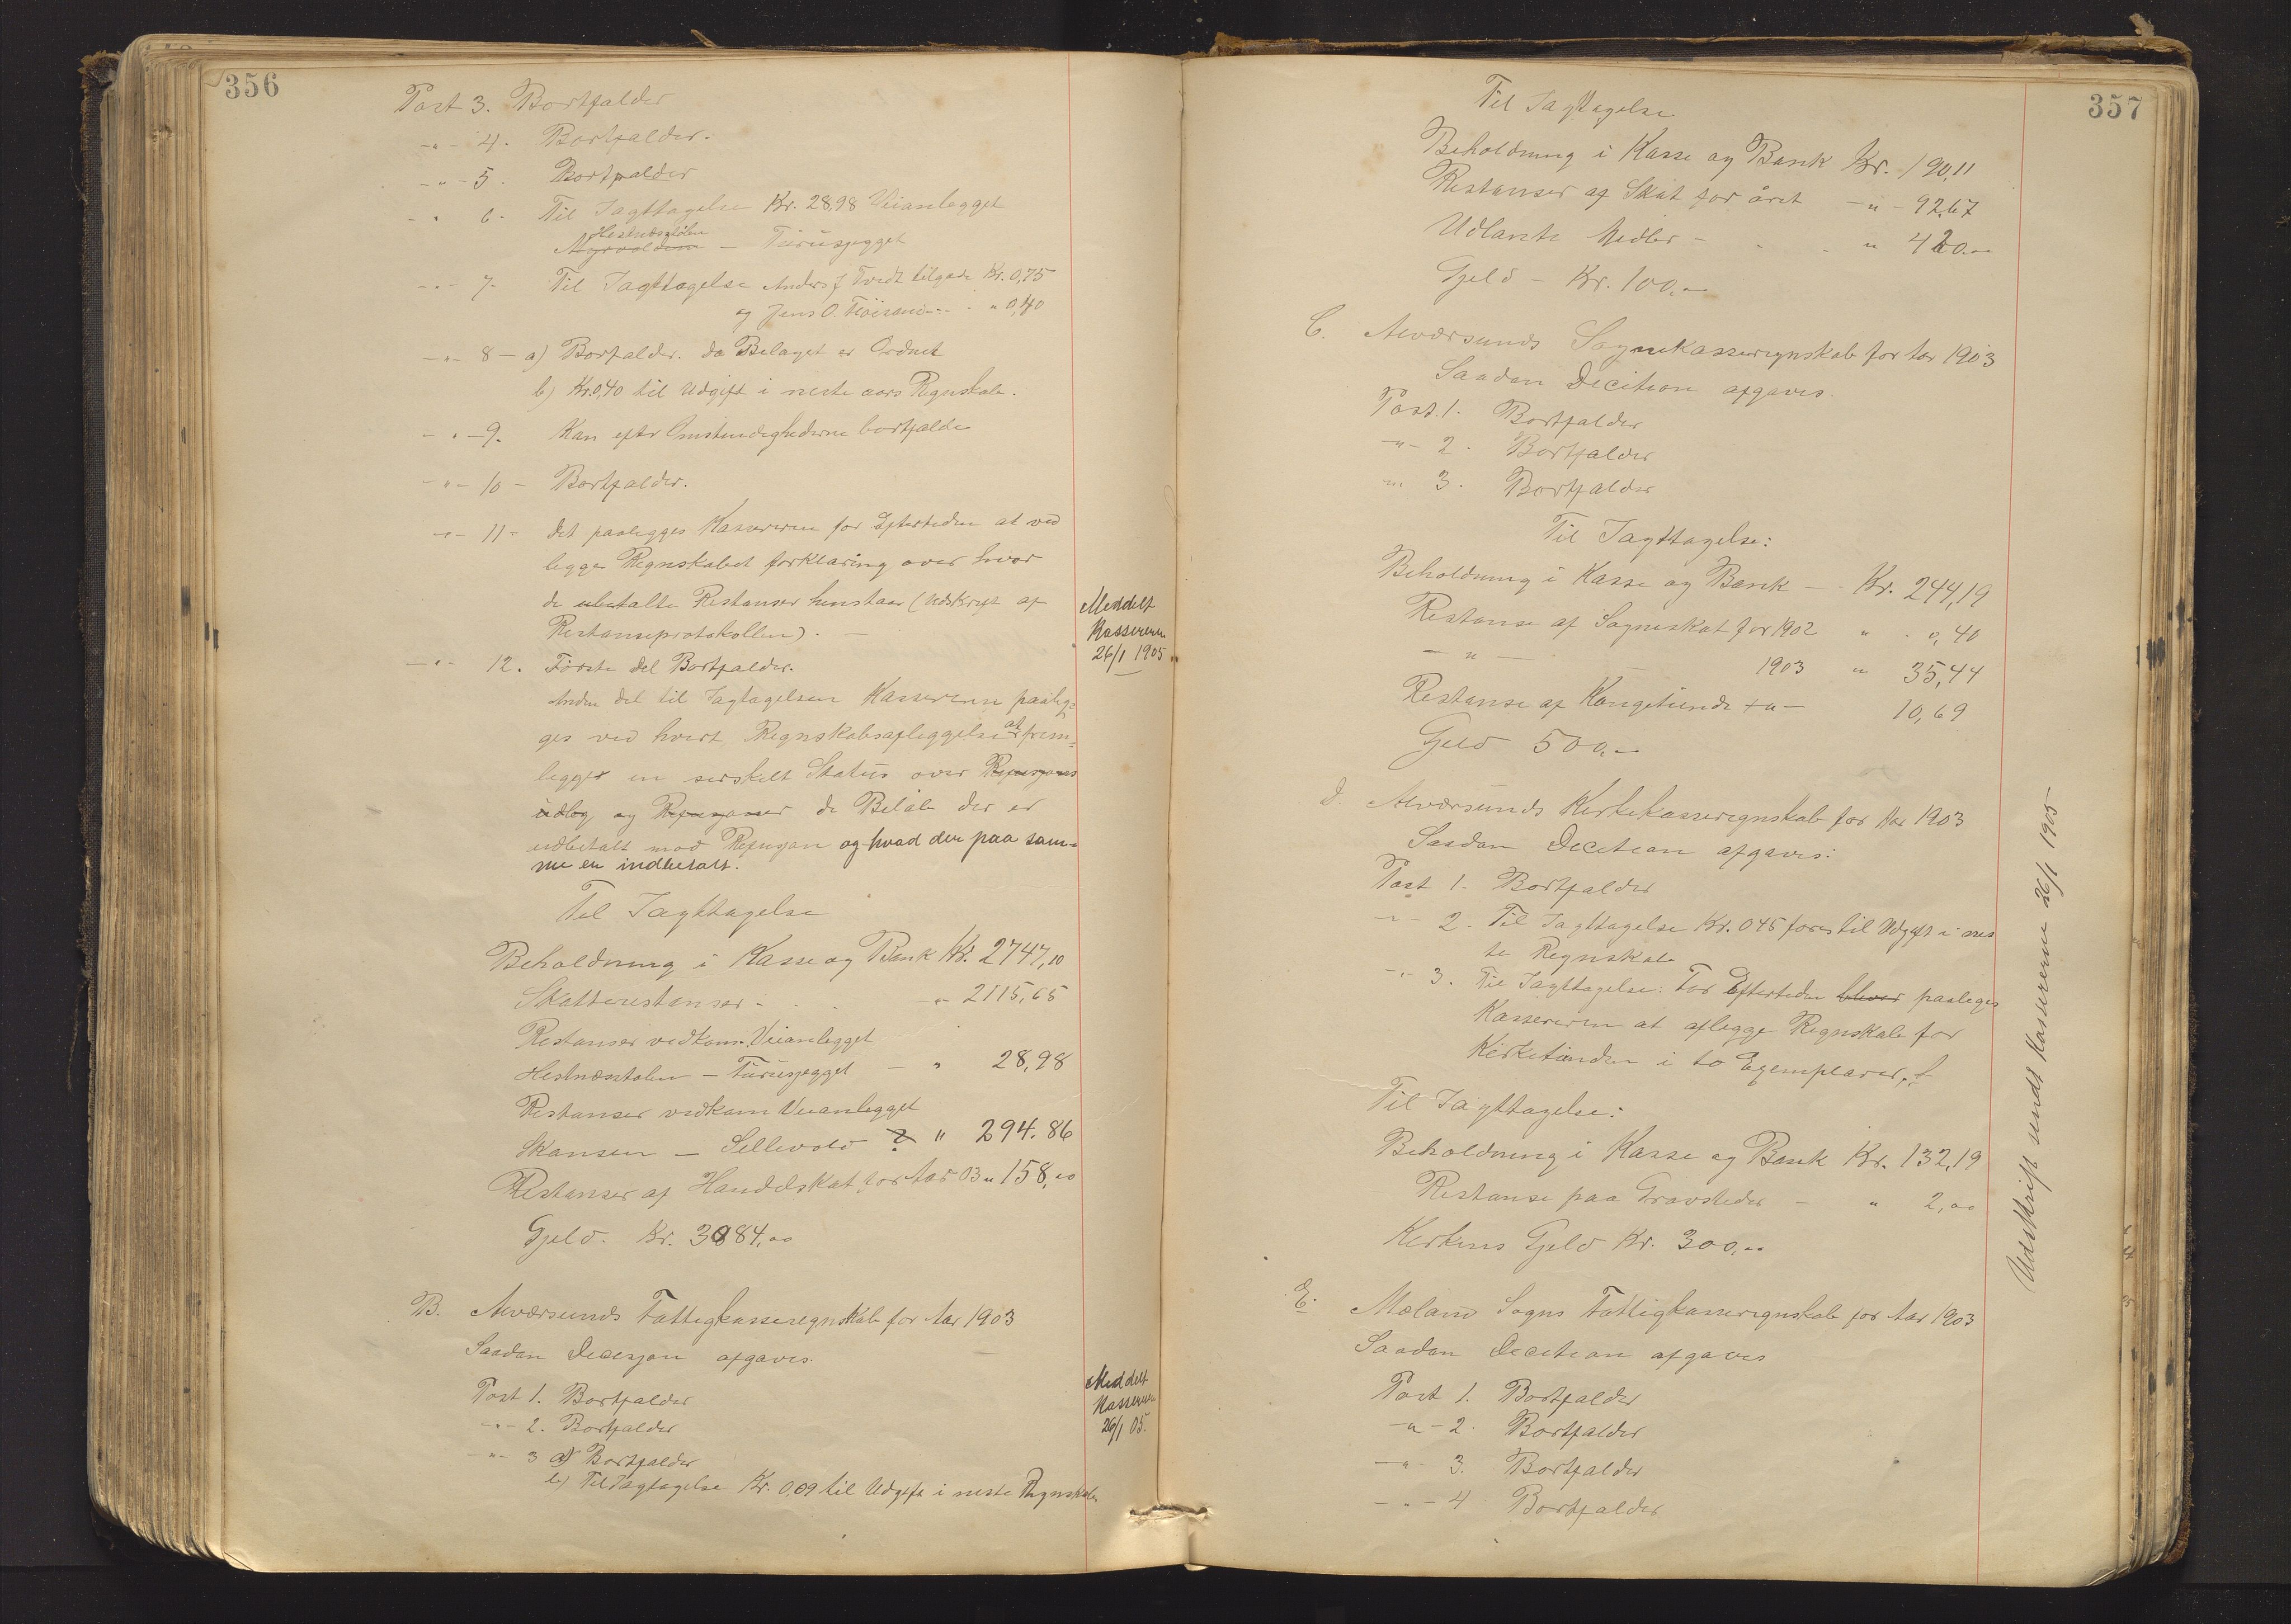 356
Post 3. Bortfalder
-"- 4. Bortfalder.
-"- 5. Bortfalder
" 6. Til Iagttagelse Kr. 28,98 Veianlegget
Hestnæsstølen
Myrvolden - Fureskjegget
-"- 7. Til Iagttagelse Anders J Tvedt tilgode Kr. 0,75
og Jens O. " 0,40
-"- 8 - a) Borfalder. da Belaget er Ordnet
b) Kr. 0,40 til Udgift i neste aars Regnskab.
-"- 9. Kan efter Omstendighederne bortfalde
-"- 10 - Bortfalder.
-"- 11 - Det paalegges Kassereren for Eftertiden at ved
legge Regnskabet forklaring over hvor
de ubetalte Restanser henstaar (Udskrift af
Restanseprotokollen). -
Meddelt
Kassereren
26/1 1905
-"- 12. Første del Bortfalder.
Anden del til Iagtagelsen Kassereren paaleg=
ges ved hvert Regnskabsafleggelse at frem=
legger en serskelt Status over Refusjons
udleg og Refusjoner de Beløb der er
udbetalt mod Refusjon og hvad der paa sam=
me er indbetalt.
Til Iagttagelse
Beholdning i Kasse og Bank Kr. 2747,10
Skatterestanser - -"- 2115,65
Restanser vedkom. Veianlegget
Hestnæsstølen - Fureskjegget - " 28,98
Restanser vedkom Veianlegget
Skansen - Sellevold ? " 294.86
Restanser af Handelskat for Aar 03 " 158,00
Gjeld. Kr. 3084,00
B. Alværsunds Fattigkasseregnskab for Aar 1903
Saadan Decesjon afgaves.
Post 1. Bortfalder
-"- 2. Bortfalder
-"- 3 a) Bortfalder
b) Til Iagtagelse Kr. 0,09 til Udgift i neste Regnskab.
Meddelt
Kassereren
26/1 05.
357
Til Iagttagelse
Beholdning i Kasse og Bank Kr. 190,11
Restanser af Skat for året -"- 92,67
Udlaante Midler - " 420.00
Gjeld - Kr. 100,00
C. Alværsunds Sognekasseregnskab for Aar 1903
Saadan Decition afgaves.
Post. 1. Bortfalder
-"- 2. Bortfalder
-"- 3. Bortfalder
Til Iagttagelse:
Beholdning i Kasse og Bank - Kr. 244,19
Restanse af Sogneskat for 1902 " 0,40
- " - 1903 " 35,44
Restanse af Kongetiende -"- 10,69
Gjeld 500.00
D. Alværsunds Kirkekasseregnskab for Aar 1903
Saadan Decition afgaves:
Post 1. Bortfalder
-"- 2. Til Iagttagelse Kr. 045 føres til Udgift i nes
te Regnskab
-"- 3. Til Iagttagelse: For Eftertiden bliver paaleges
Kassereren at aflegge Regnskab for
Kirketienden i to Exemplarer.
Til Iagttagelse:
Beholdning i Kasse og Bank Kr. 132,19
Restanse paa Gravsteder - " 2,00
Kirkens Gjeld Kr. 300.00
Udskrift sendt Kassererne 26/1 1905
E. Mæland Sogns Fattigkasseregnskab for Aar 1903
Saadan Decition afgaves
Post 1. Bortfalder
-"- 2. Bortfalder
-"- 3. Bortfalder
-"- 4 Bortfalder